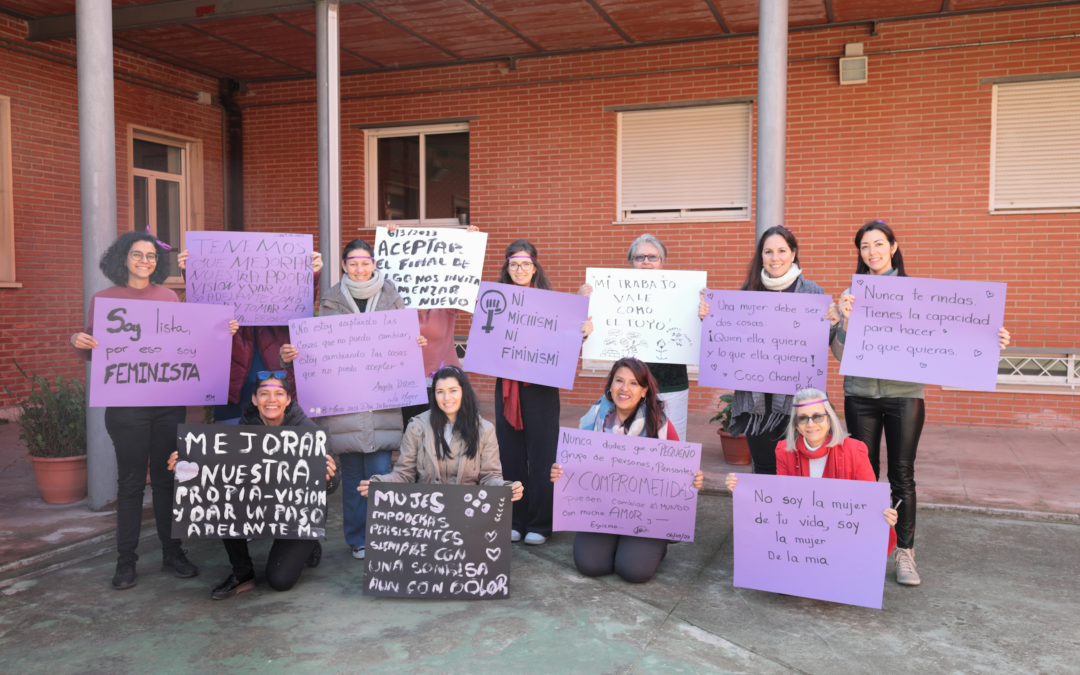 Soy lista,
por eso soy
FEMINISTA
TENEMOS
QUE MEJORAR
NUESTRA PROPIA
VISION Y DAR UN
"No estoy aceptando las
cosas que no puedo cambiar,
estoy cambiando las cosas
que no puedo aceptar"
Angela Davis
6/3/2023
ACEPTAR
EL FINAL DE
ALGO NOS INVITA
COMENZAR
ALGO NUEVO
NI
MICHISMI
NI
FIMINISMI
MI TRABAJO
VALE
COMO
EL TUYO
Una mujer debe ser
dos cosas:
¡Quien ella quiera
y lo que ella quiera!
Coco Chanel
Nunca te rindas.
Tienes la capacidad
para hacer
lo que quieras.
MEJORAR
NUESTRA.
PROPIA-VISION
Y DAR UN PASO
ADELANTE M.
MUJES
EMPODERAS
PERSISTENTES
SIEMPRE CON
UNA SONRISA
AUN CON DOLOR
Nunca dudes que un PEQUEÑO
grupo de personas, Pensantes
Y COMPROMETIDAS
pueden cambiar El MUNDO
con mucho AMOR y
No soy la mujer
de tu vida, soy
la mujer
De la mia